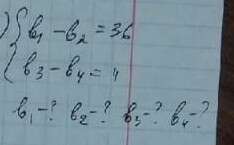 ) { b₁ - b₂ = 36
{ b₃ - b₄ = 4
b₁-? b₂-? b₃-? b₄-?